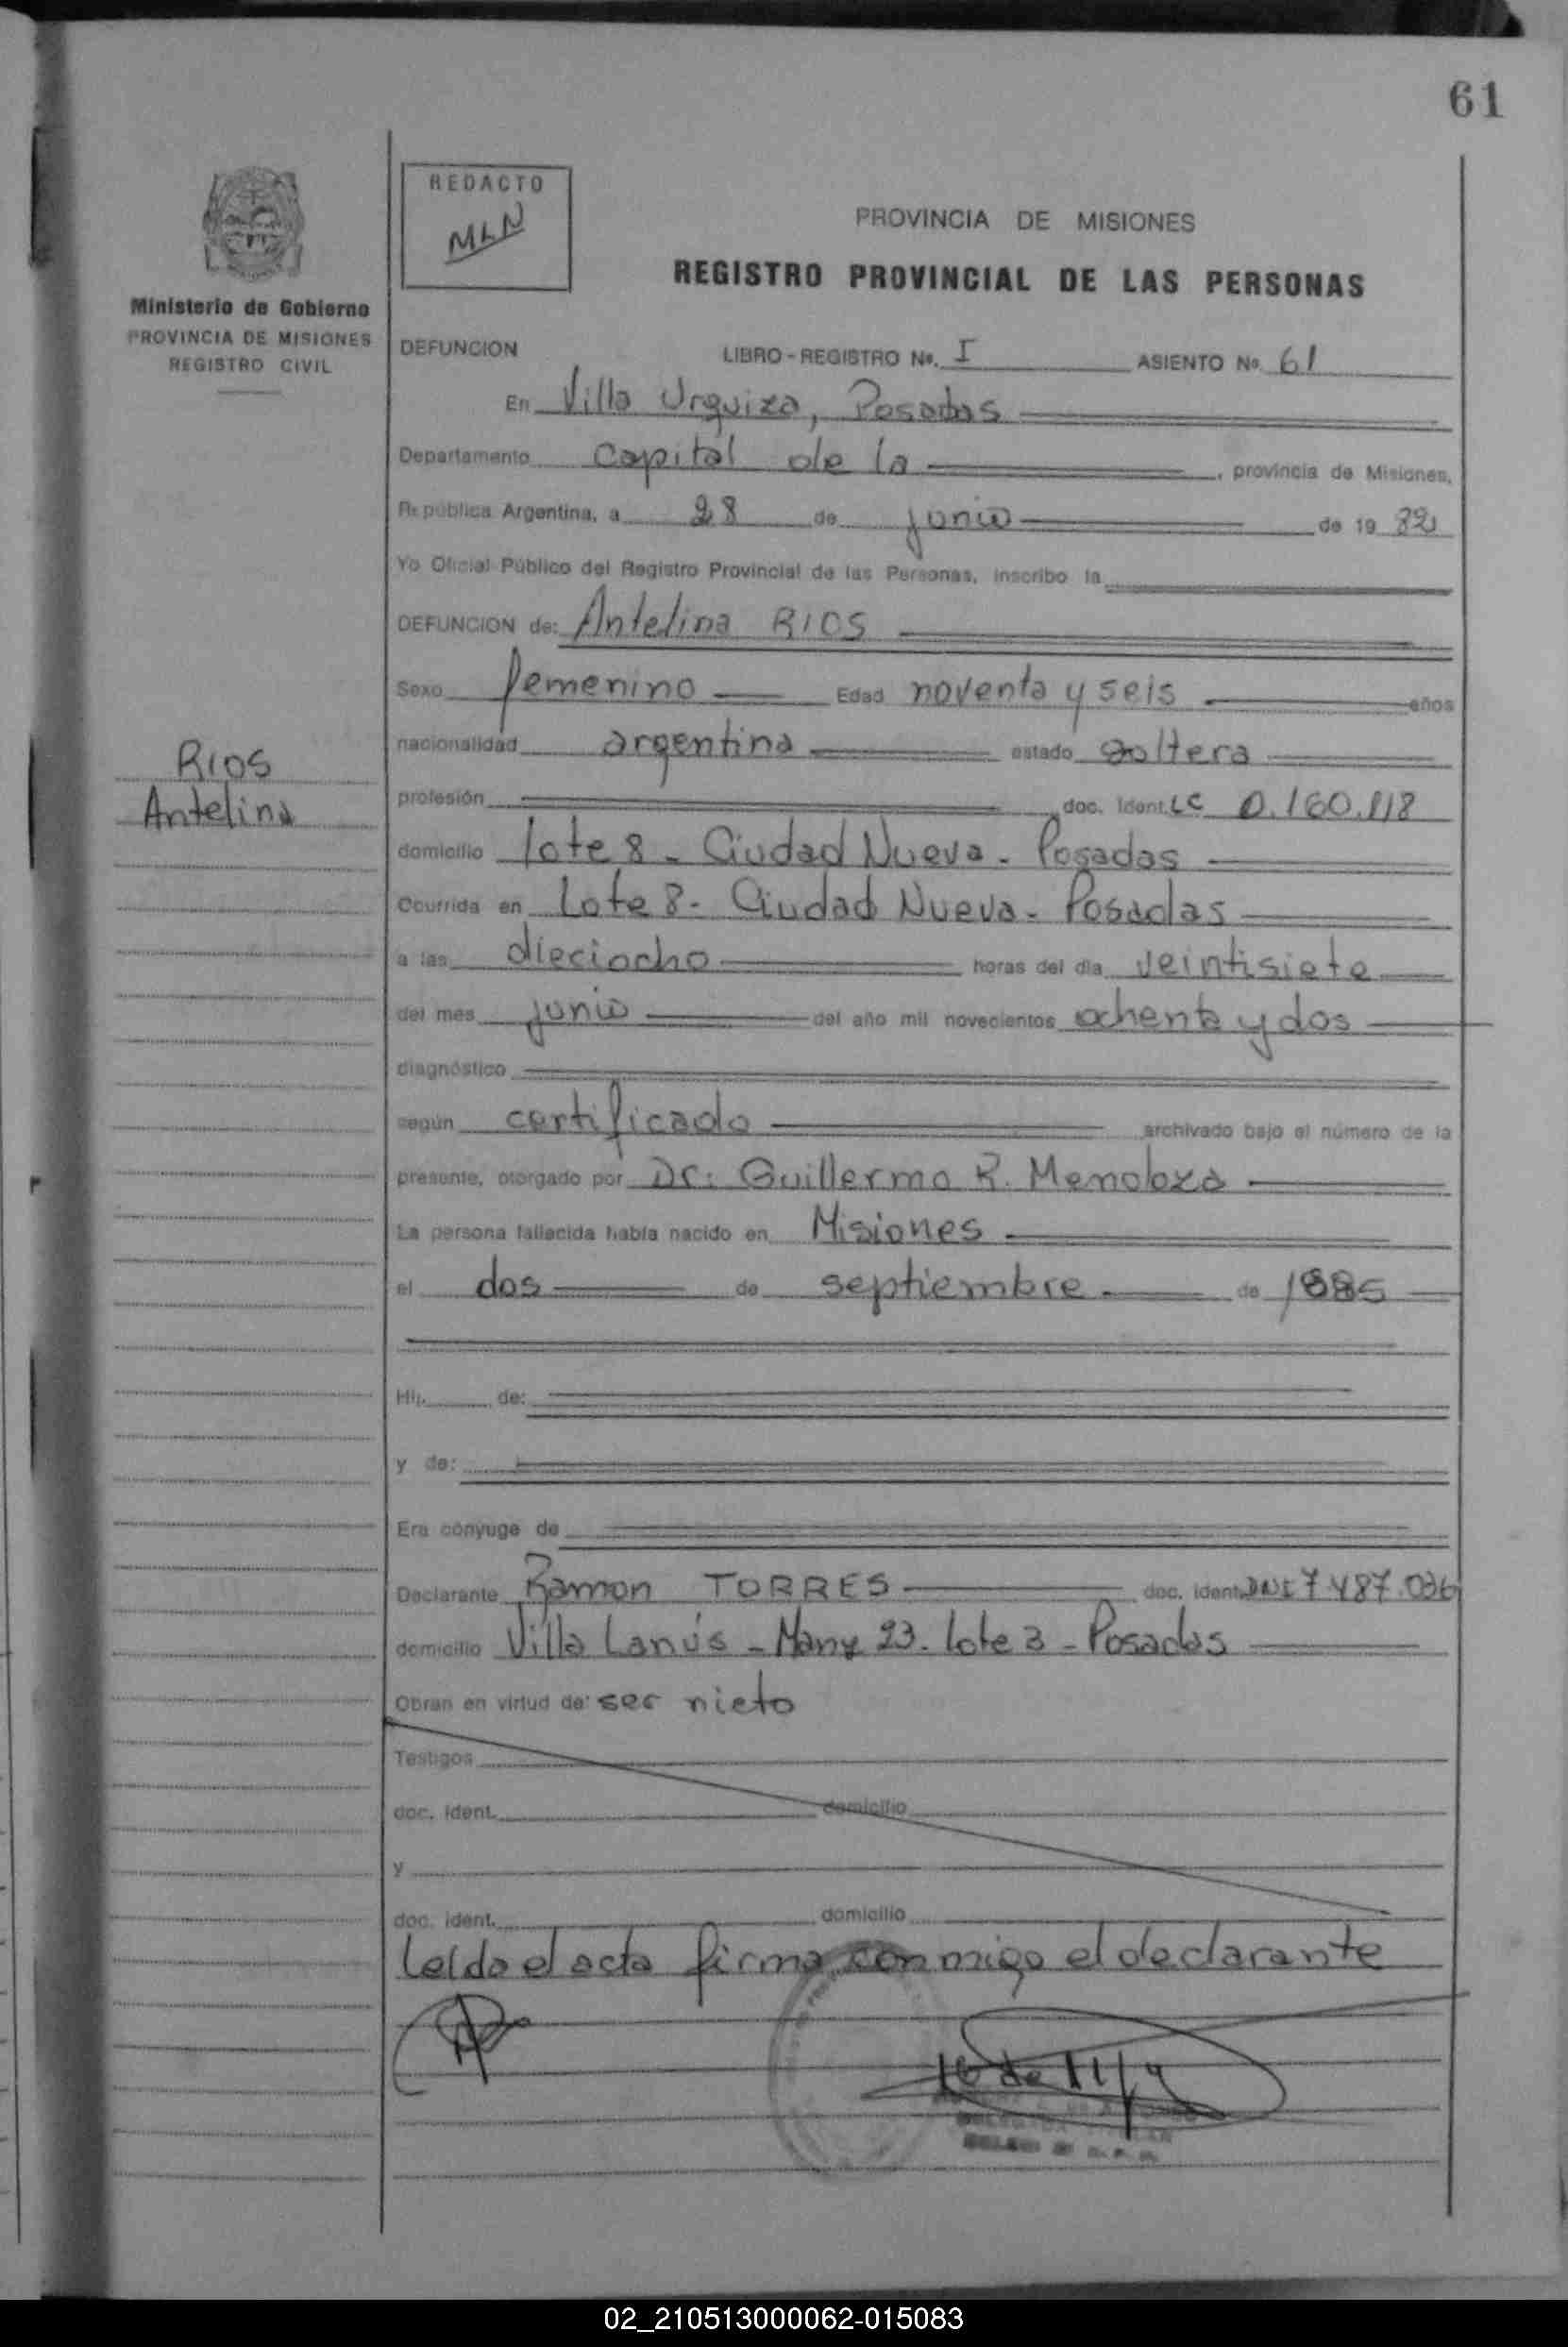 61
REDACTO
MLN
PROVINCIA DE MISIONES
REGISTRO PROVINCIAL DE LAS PERSONAS
Ministerio de Gobierno
PROVINCIA DE MISIONES
REGISTRO CIVIL
DEFUNCION LIBRO-REGISTRO No. I ASIENTO No. 61
En Villa Urquiza, Posadas
Departamento Capital de la, provincia de Misiones,
República Argentina, a 28 de junio de 1982
Yo Oficial Público del Registro Provincial de las Personas, inscribo la
DEFUNCION de: Antelina RIOS
Sexo femenino Edad noventa y seis años
nacionalidad argentina estado soltera
RIOS
Antelina
profesión doc. Ident. LC 0.160.118
domicilio lote 8 - Ciudad Nueva - Posadas
Ocurrida en Lote 8 - Ciudad Nueva - Posadas
a las dieciocho horas del día veintisiete
del mes junio del año mil novecientos ochenta y dos
diagnóstico
según certificado archivado bajo el número de la
presente, otorgado por Dr: Guillermo R. Mendoza
La persona fallecida había nacido en Misiones
el dos de septiembre de 1885
Hij. de:
y de:
Era cónyuge de
Declarante Ramon TORRES doc. ident. DNI 7.487.036
domicilio Villa Lanús - Manz 23. lote 3 - Posadas
Obran en virtud de: ser nieto
Testigos
doc. ident. domicilio
y
doc. ident. domicilio
Leída el acta firma conmigo el declarante
02_210513000062-015083